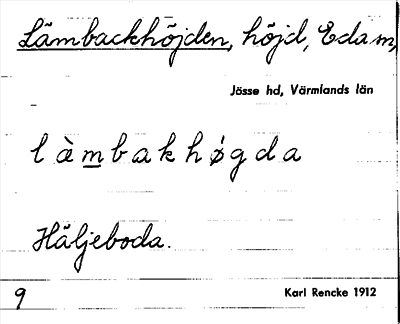 Lämbackhöjden, höjd, Edam,
Jösse hd, Värmlands län
l à m b a k h ø g d a
Häljeboda.
9
Karl Rencke 1912